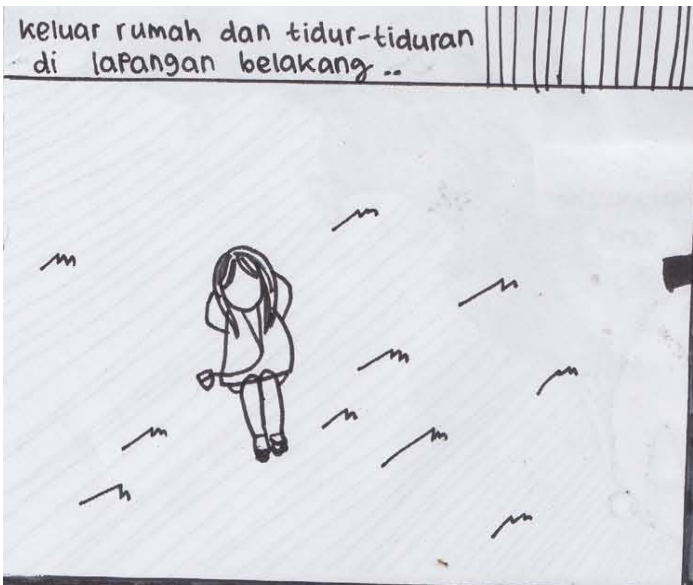 keluar rumah dan tidur-tiduran
di lapangan belakang..